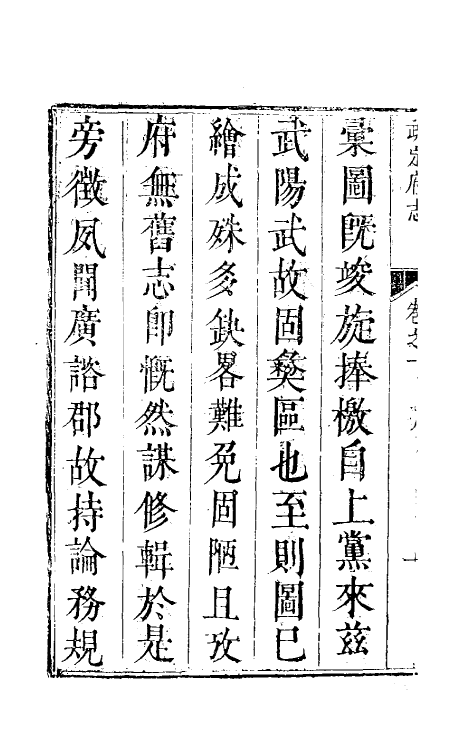 武定府志
卷之一
彙圖既竣旋捧檄自上黨來兹
武陽武故固㢞區也至則圖已
繪成殊多缺畧難免固陋且攷
府無舊志卽慨然謀修輯於是
旁徵夙聞廣諮郡故持論務規